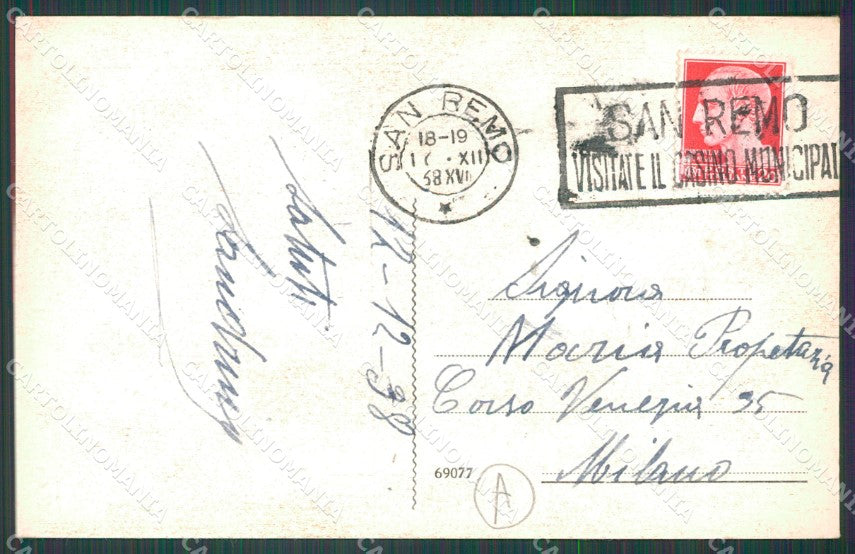 SAN REMO
18-19
12 · XII
38 XVII
SAN REMO
VISITATE IL CASINO MUNICIPAL
Saluti
12-12-38
Signora
Maria Propetazia
Corso Venezia 35
Milano
69077
A
CARTOLINOMANIA